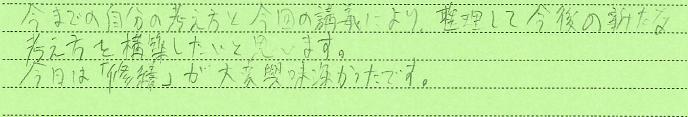 今までの自分の考え方と今回の講義により、整理して今後の新たな
考え方を構築したいと思います。
今日は「修繕」が大変興味深かったです。